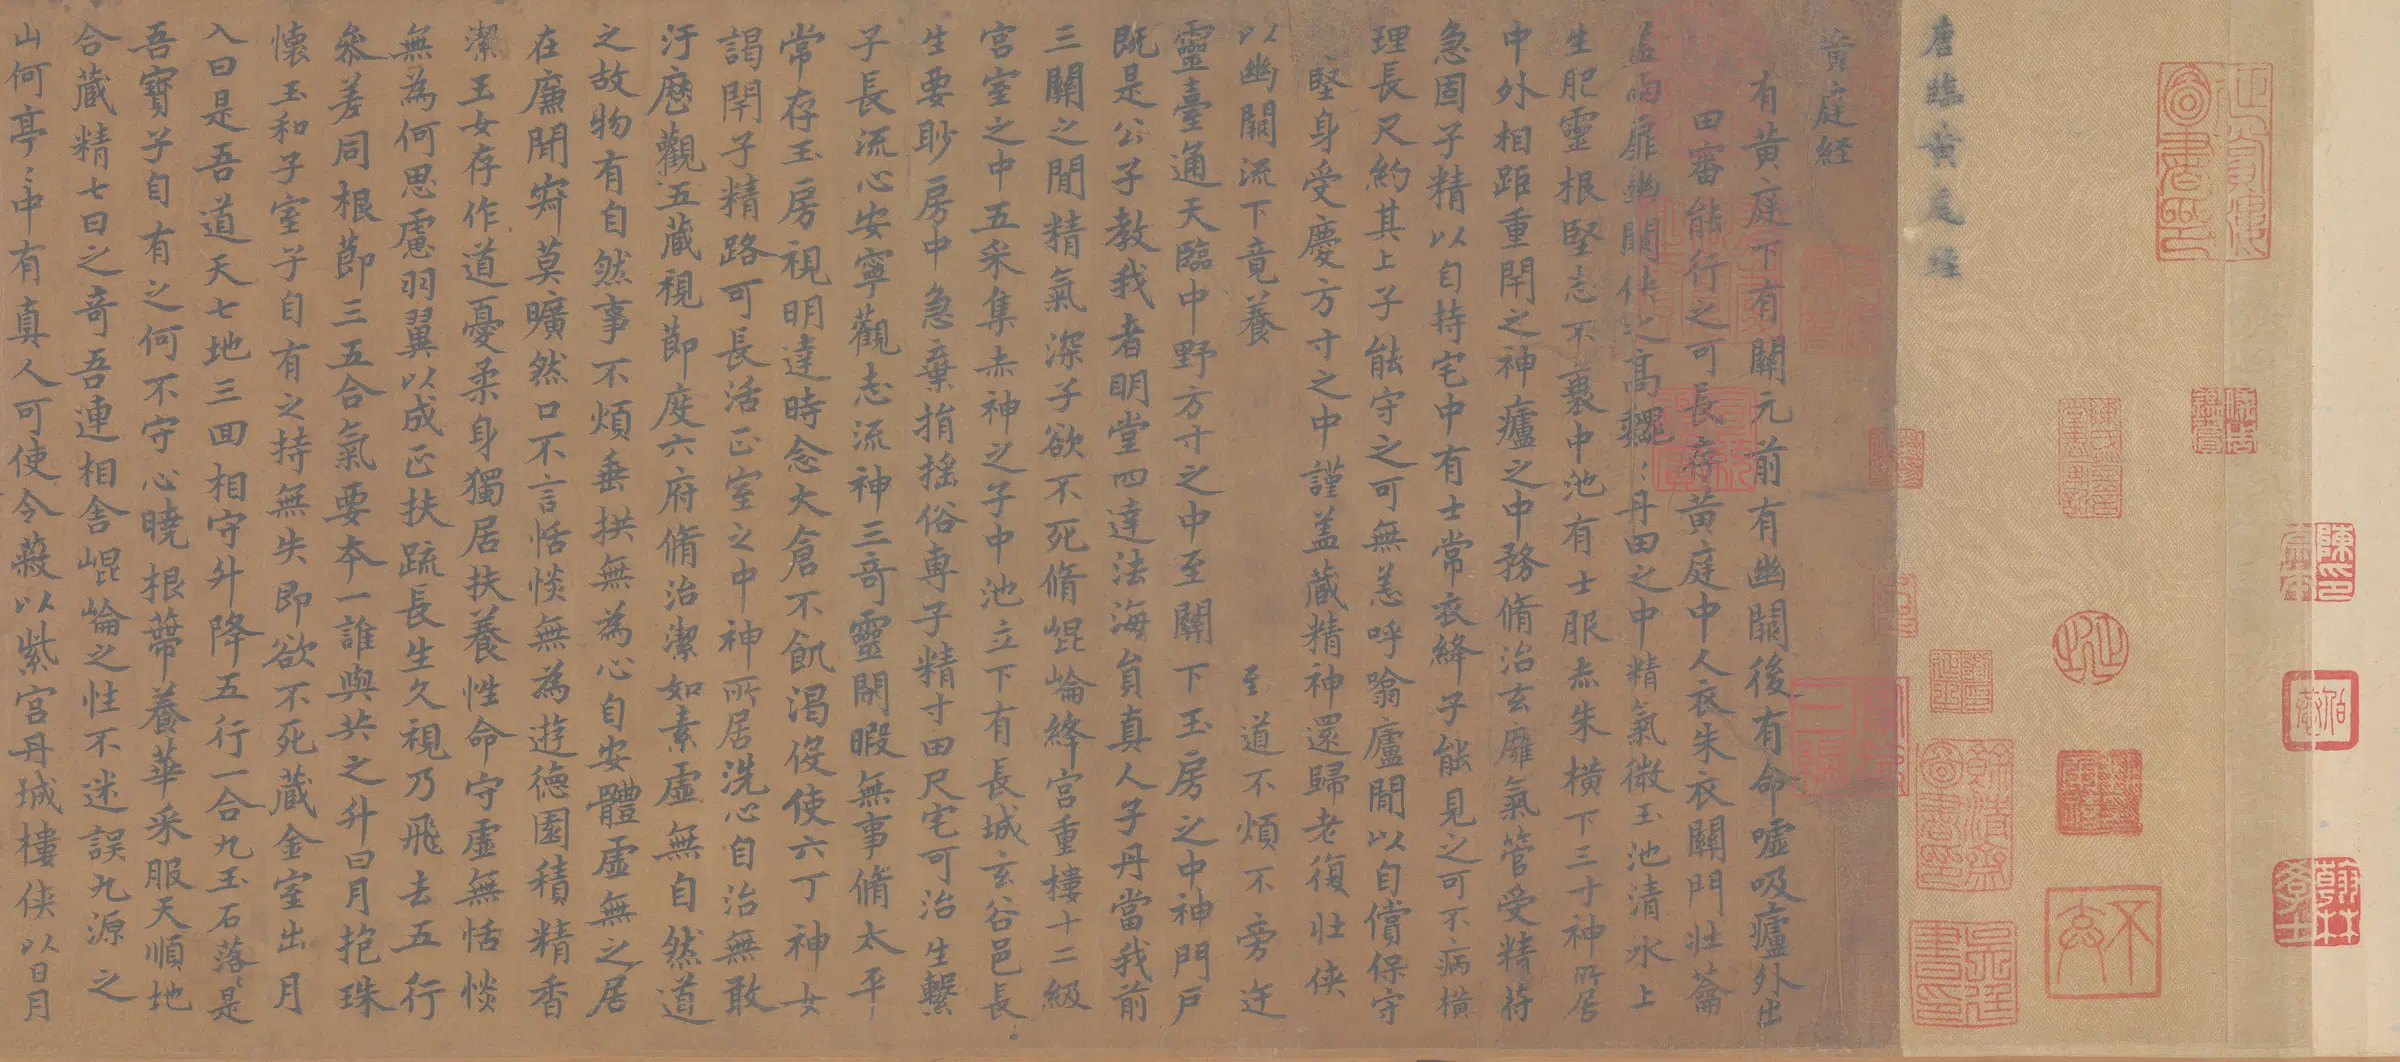 唐臨黃庭經
黃庭經
有黃庭下有關元前有幽闕後有命噓吸廬外出
田審能行之可長存黃庭中人衣朱衣關門壯蘥
蓋兩扉幽闕俠之高巍〻丹田之中精氣微玉池清水上
生肥靈根堅志不衰中池有士服赤朱橫下三寸神所居
中外相距重閇之神廬之中務脩治玄廱氣管受精苻
急固子精以自持宅中有士常衣絳子能見之可不病橫
理長尺約其上子能守之可無恙呼噏廬閒以自償保守
堅身受慶方寸之中謹盖藏精神還歸老復壯俠
以幽闕流下竟養至道不煩不旁迕
靈臺通天臨中野方寸之中至關下玉房之中神門戶
既是公子教我者明堂四達法海員真人子丹當我前
三關之閒精氣深子欲不死脩崐崘絳宮重樓十二級
宮室之中五采集赤神之子中池立下有長城玄谷邑長
生要眇房中急棄捐揺俗專子精寸田尺宅可治生繫
子長流心安寧觀志流神三奇靈閑暇無事脩太平
常存玉房視明達時念大倉不飢渴役使六丁神女
謁閇子精路可長活正室之中神所居洗心自治無敢
汙歷觀五藏視節度六府脩治潔如素虛無自然道
之故物有自然事不煩垂拱無為心自安體虛無之居
在廉閒寂莫曠然口不言恬惔無為遊德園積精香
潔玉女存作道憂柔身獨居扶養性命守虛無恬惔
無為何思慮羽翼以成正扶疏長生久視乃飛去五行
叅差同根節三五合氣要本一誰與共之升日月抱珠
懷玉和子室子自有之持無失即欲不死藏金室出月
入日是吾道天七地三回相守升降五行一合九玉石落〻是
吾寶子自有之何不守心曉根蔕養華采服天順地
合藏精七日之奇吾連相舍崐崘之性不迷誤九源之
山何亭〻中有真人可使令蔽以紫宮丹城樓俠以日月